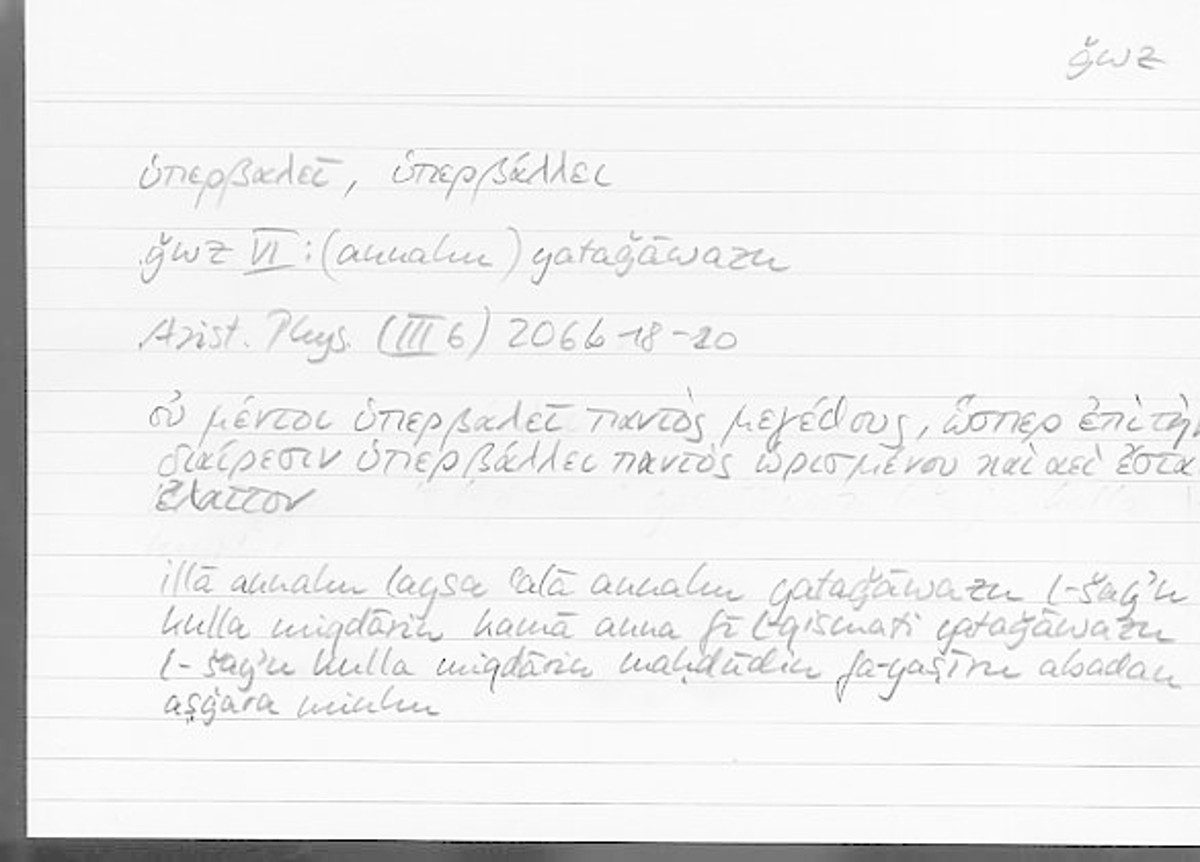 ǧwz
ὑπερβαλεῖ, ὑπερβάλλει
ǧwz VI: (annahu) yataǧāwazu
Arist. Phys. (III 6) 206b 18-20
οὐ μέντοι ὑπερβαλεῖ παντὸς μεγέθους, ὥσπερ ἐπὶ τὴν
διαίρεσιν ὑπερβάλλει παντὸς ὡρισμένου καὶ αεὶ ἔστα
ἔλαττον
illā annahu laysa ʿalā annahu yataǧāwazu l-šayʾu
kulla miqdārin kamā anna fī l-qismati yataǧāwazu
l-šayʾu kulla miqdārin maḥdūdin fa-yaṣīru abadan
aṣġara minhu